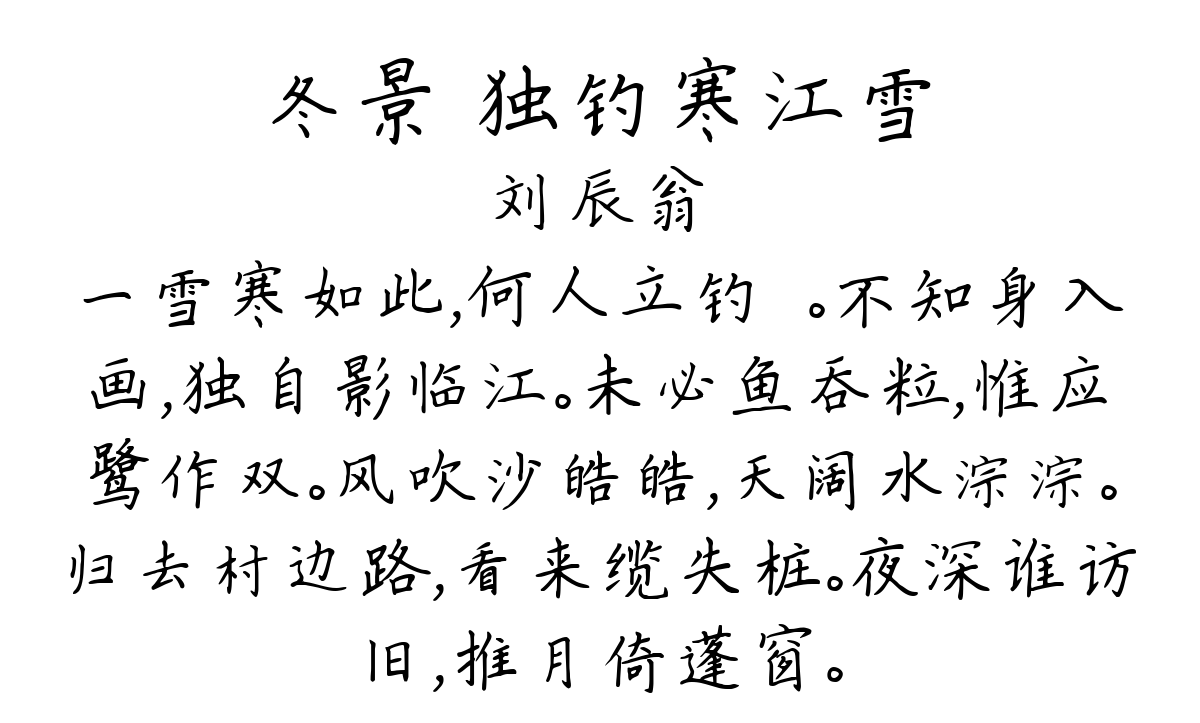 冬景 独钓寒江雪
刘辰翁
一雪寒如此,何人立钓 。不知身入
画,独自影临江。未必鱼吞粒,惟应
鹭作双。风吹沙皓皓,天阔水淙淙。
归去村边路,看来缆失桩。夜深谁访
旧,推月倚蓬窗。